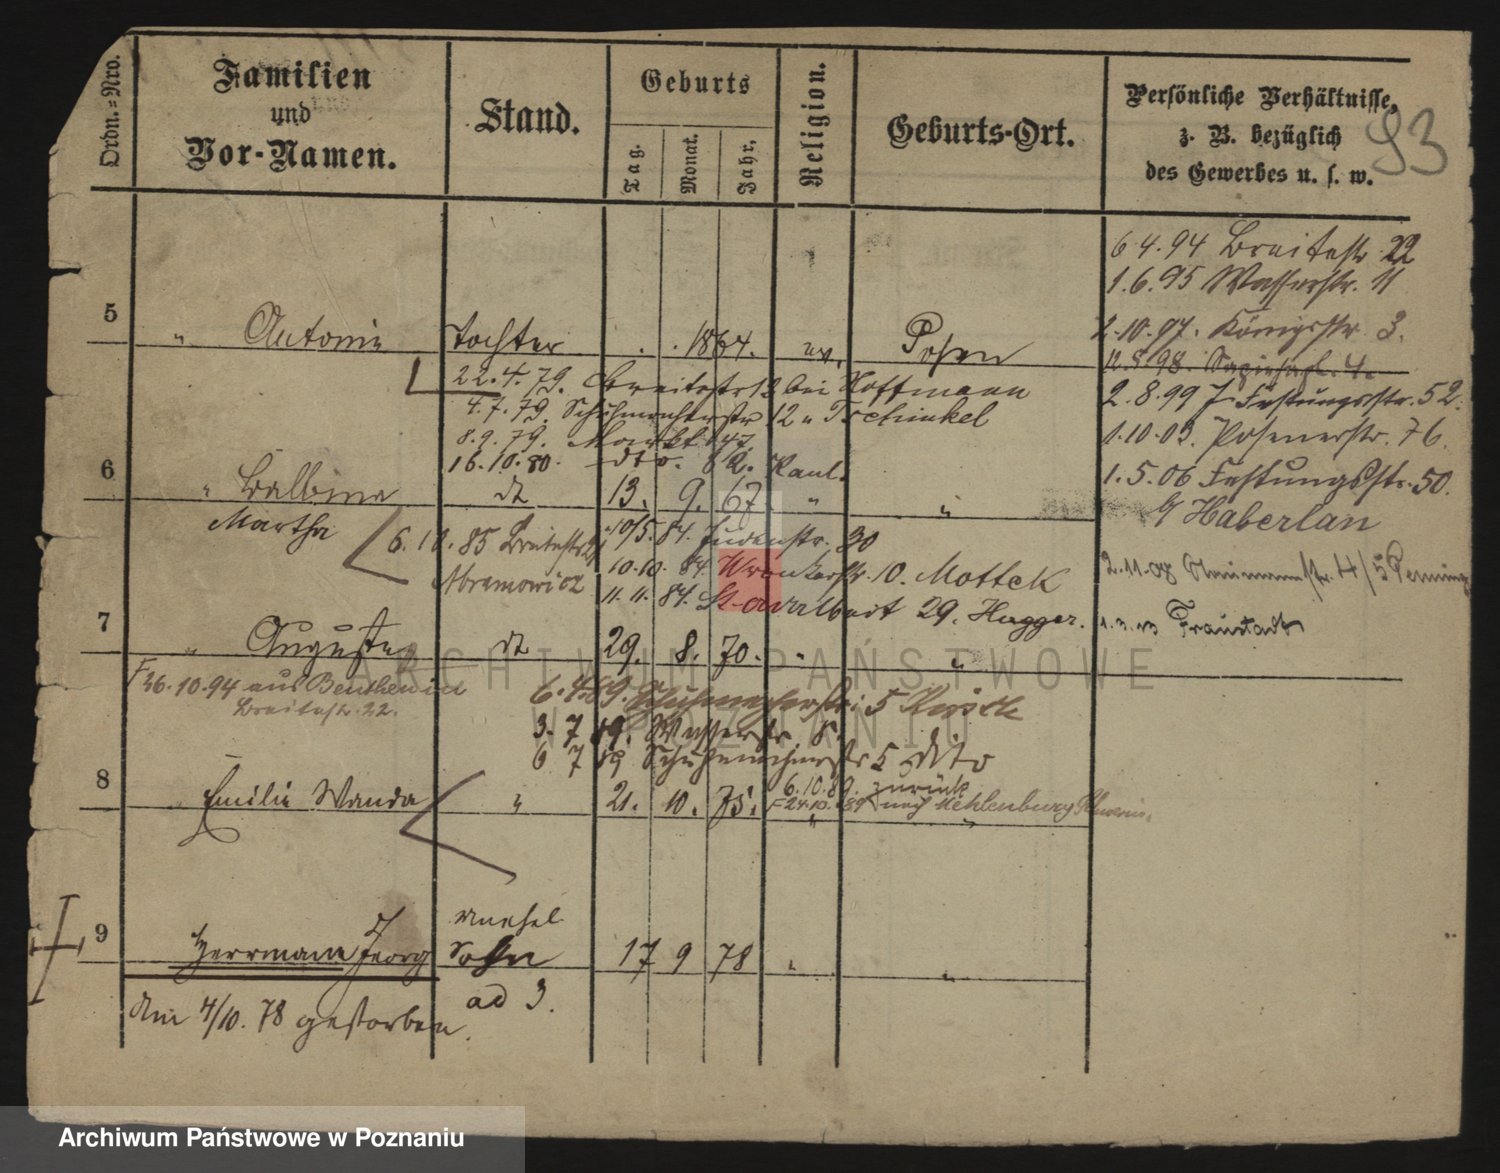 Ordn.=Nro.
Familien
und
Vor-Namen.
Stand.
Geburts
Tag.
Monat.
Jahr.
Religion.
Geburts-Ort.
Persönliche Verhältnisse,
z. B. bezüglich
des Gewerbes u. s. w.
93
6 4.94 Breitestr. 22
1.6.95 Wasserstr. 11
2.10.97. Königsstr. 3.
2.8.99 Festungsstr. 52.
1.10.03. Posenerstr. 76.
1.5.06 Festungsstr. 50.
Haberlan
2.11.08 4/5
1.3.13 Fraustadt
5 " Antonie Tochter . . 1864. ev. Posen
22.4.79. Breitestr 12 bei Hoffmann
4.7.79. Schuhmacherstr 12 " Tschinkel
8.9.79. Markt 47
16.10.80. dto. 82. Kaul.
6 " Balbina dt 13. 9. 67. " "
Martha
6.10.85 Breitestr 21
Abramowicz
10/5. 84. Judenstr. 30
10.10. 84 Wronkerstr. 10. Mottek
11.11. 84. St. Adalbert 29. Hugger.
7 " Auguste dt 29. 8. 70. " "
26.10.94 aus Beuthen
Breitestr. 22.
6.4.89. Schuhmacherstr. 5
3. 7 89. Wasserstr. 8.
6 7 89 Schuhmacherstr 5 dito
8 " Emilie Wanda " 21. 10. 75. " "
6.10.89. zurück
24.10. 89 nach Mehlenburg Schwerin.
9 Herrmann Georg unehel
Sohn 17 9 78 " "
ad 3.
Am 4/10. 78 gestorben.
ARCHIWUM PAŃSTWOWE
W POZNANIU
Archiwum Państwowe w Poznaniu